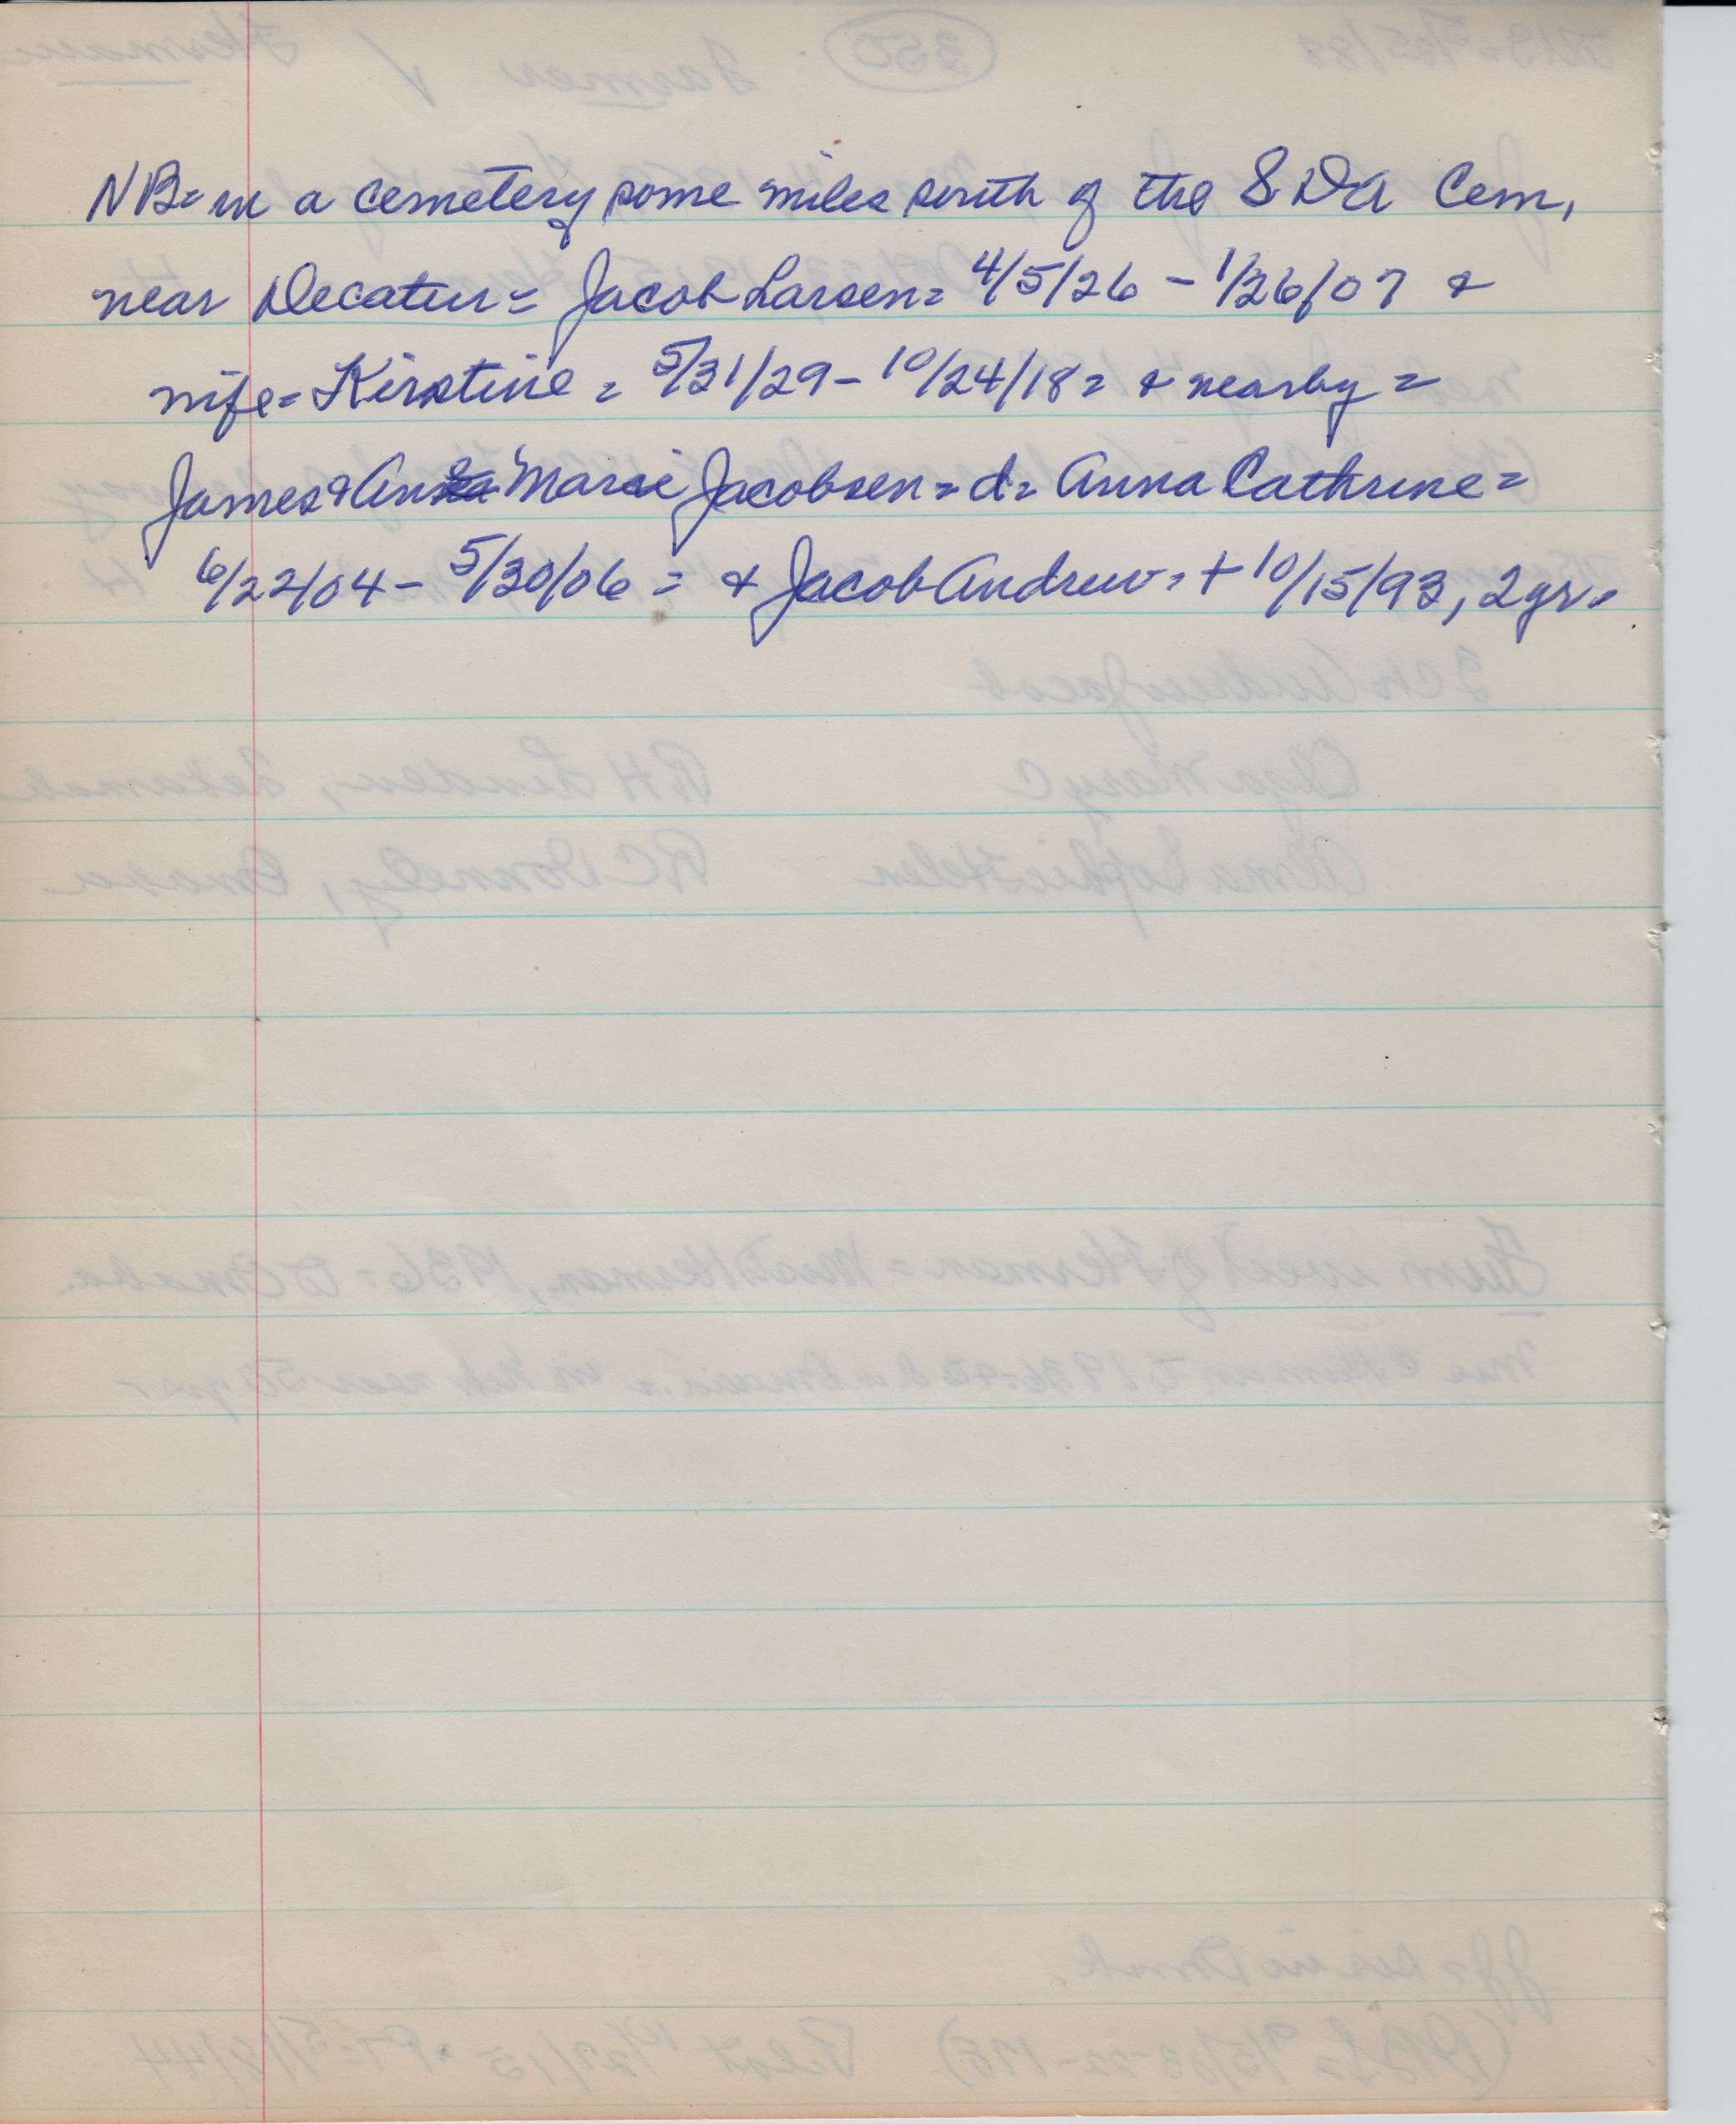 NB= in a cemetery some miles south of the SDA Cem,
near Decatur = Jacob Larsen = 4/5/26 - 1/26/07 &
wife = Kirstine = 5/31/29 - 10/24/18 = & nearby =
James & Anna Marie Jacobsen = d = Anna Cathrine =
6/22/04 - 5/30/06 = & Jacob Andrew = + 10/15/93, 2 yrs